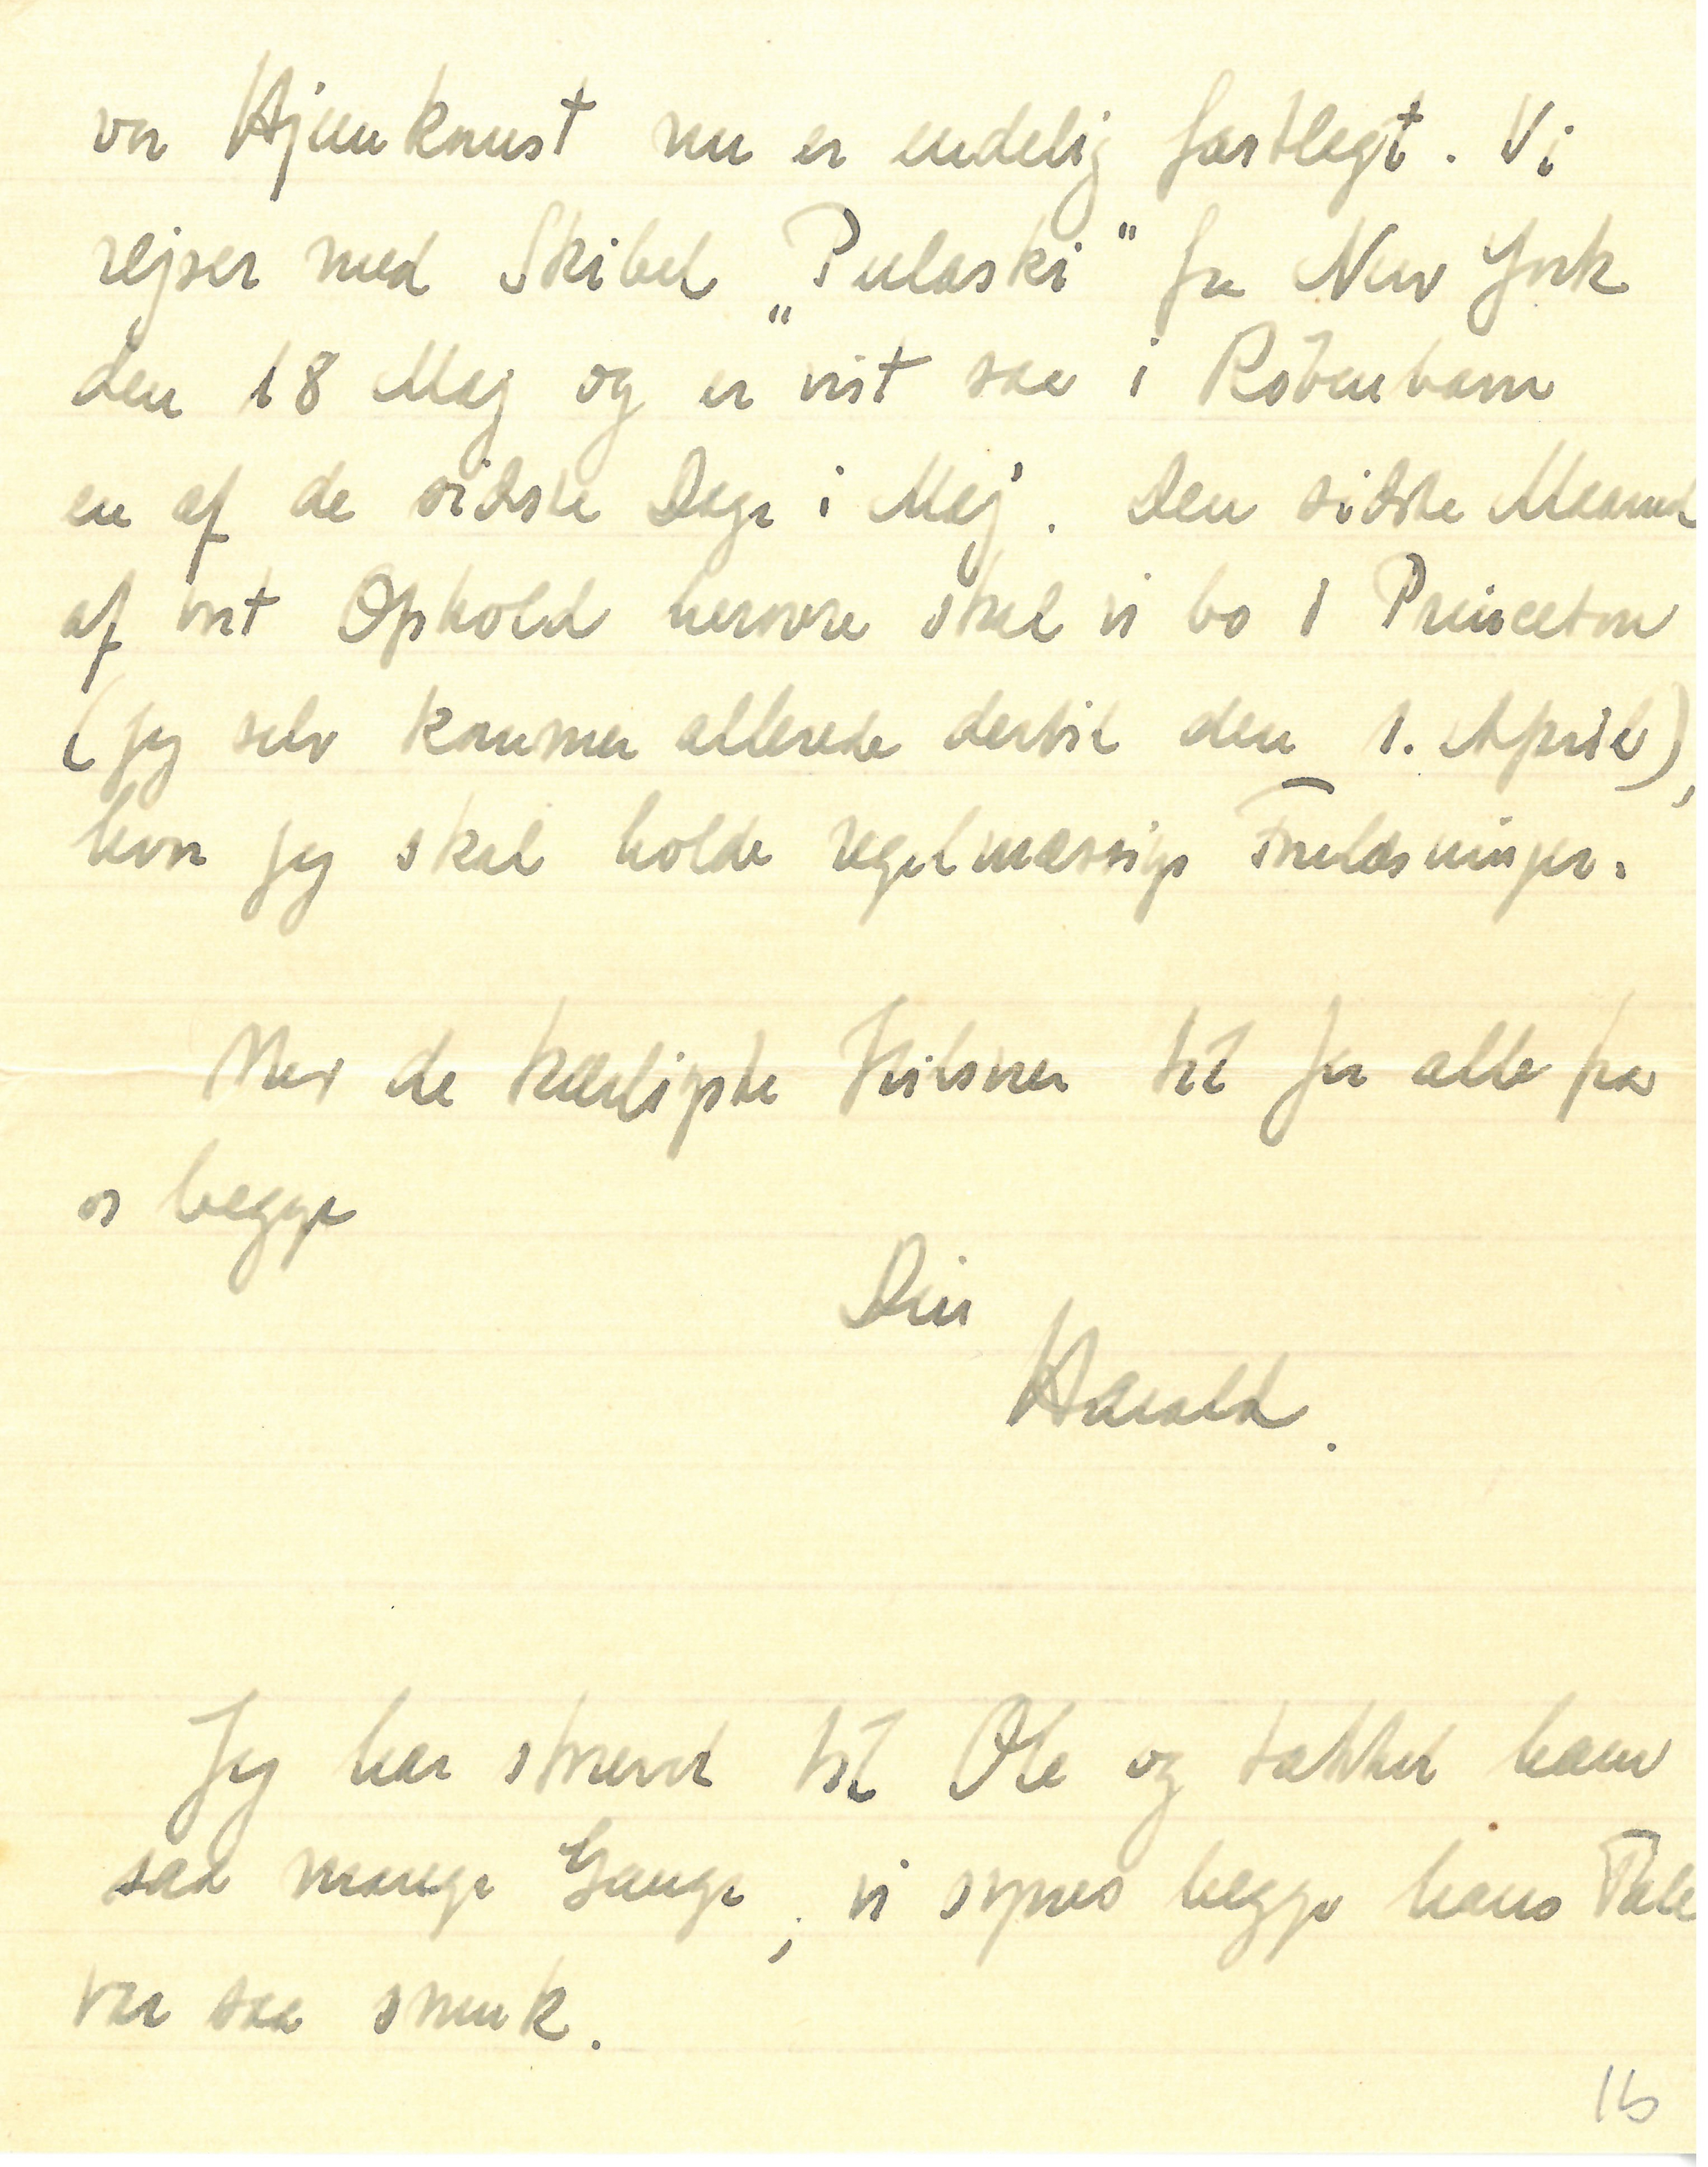 vor Hjemkomst nu er endelig fastlagt. Vi
rejser med Skibet „Pulaski" fra New York
den 18 Maj og er vist saa i København
en af de sidste Dage i Maj. Den sidste Maaned
af vort Ophold herovre skal vi bo i Princeton
(jeg selv kommer allerede dertil den 1. April),
hvor jeg skal holde regelmæssige Forelæsninger.
Med de kærligste Hilsner til Jer alle fra
os begge
Din
Harald.
Jeg har skrevet til Ole og takket ham
saa mange Gange, vi synes begge hans Tale
var saa smuk.
16